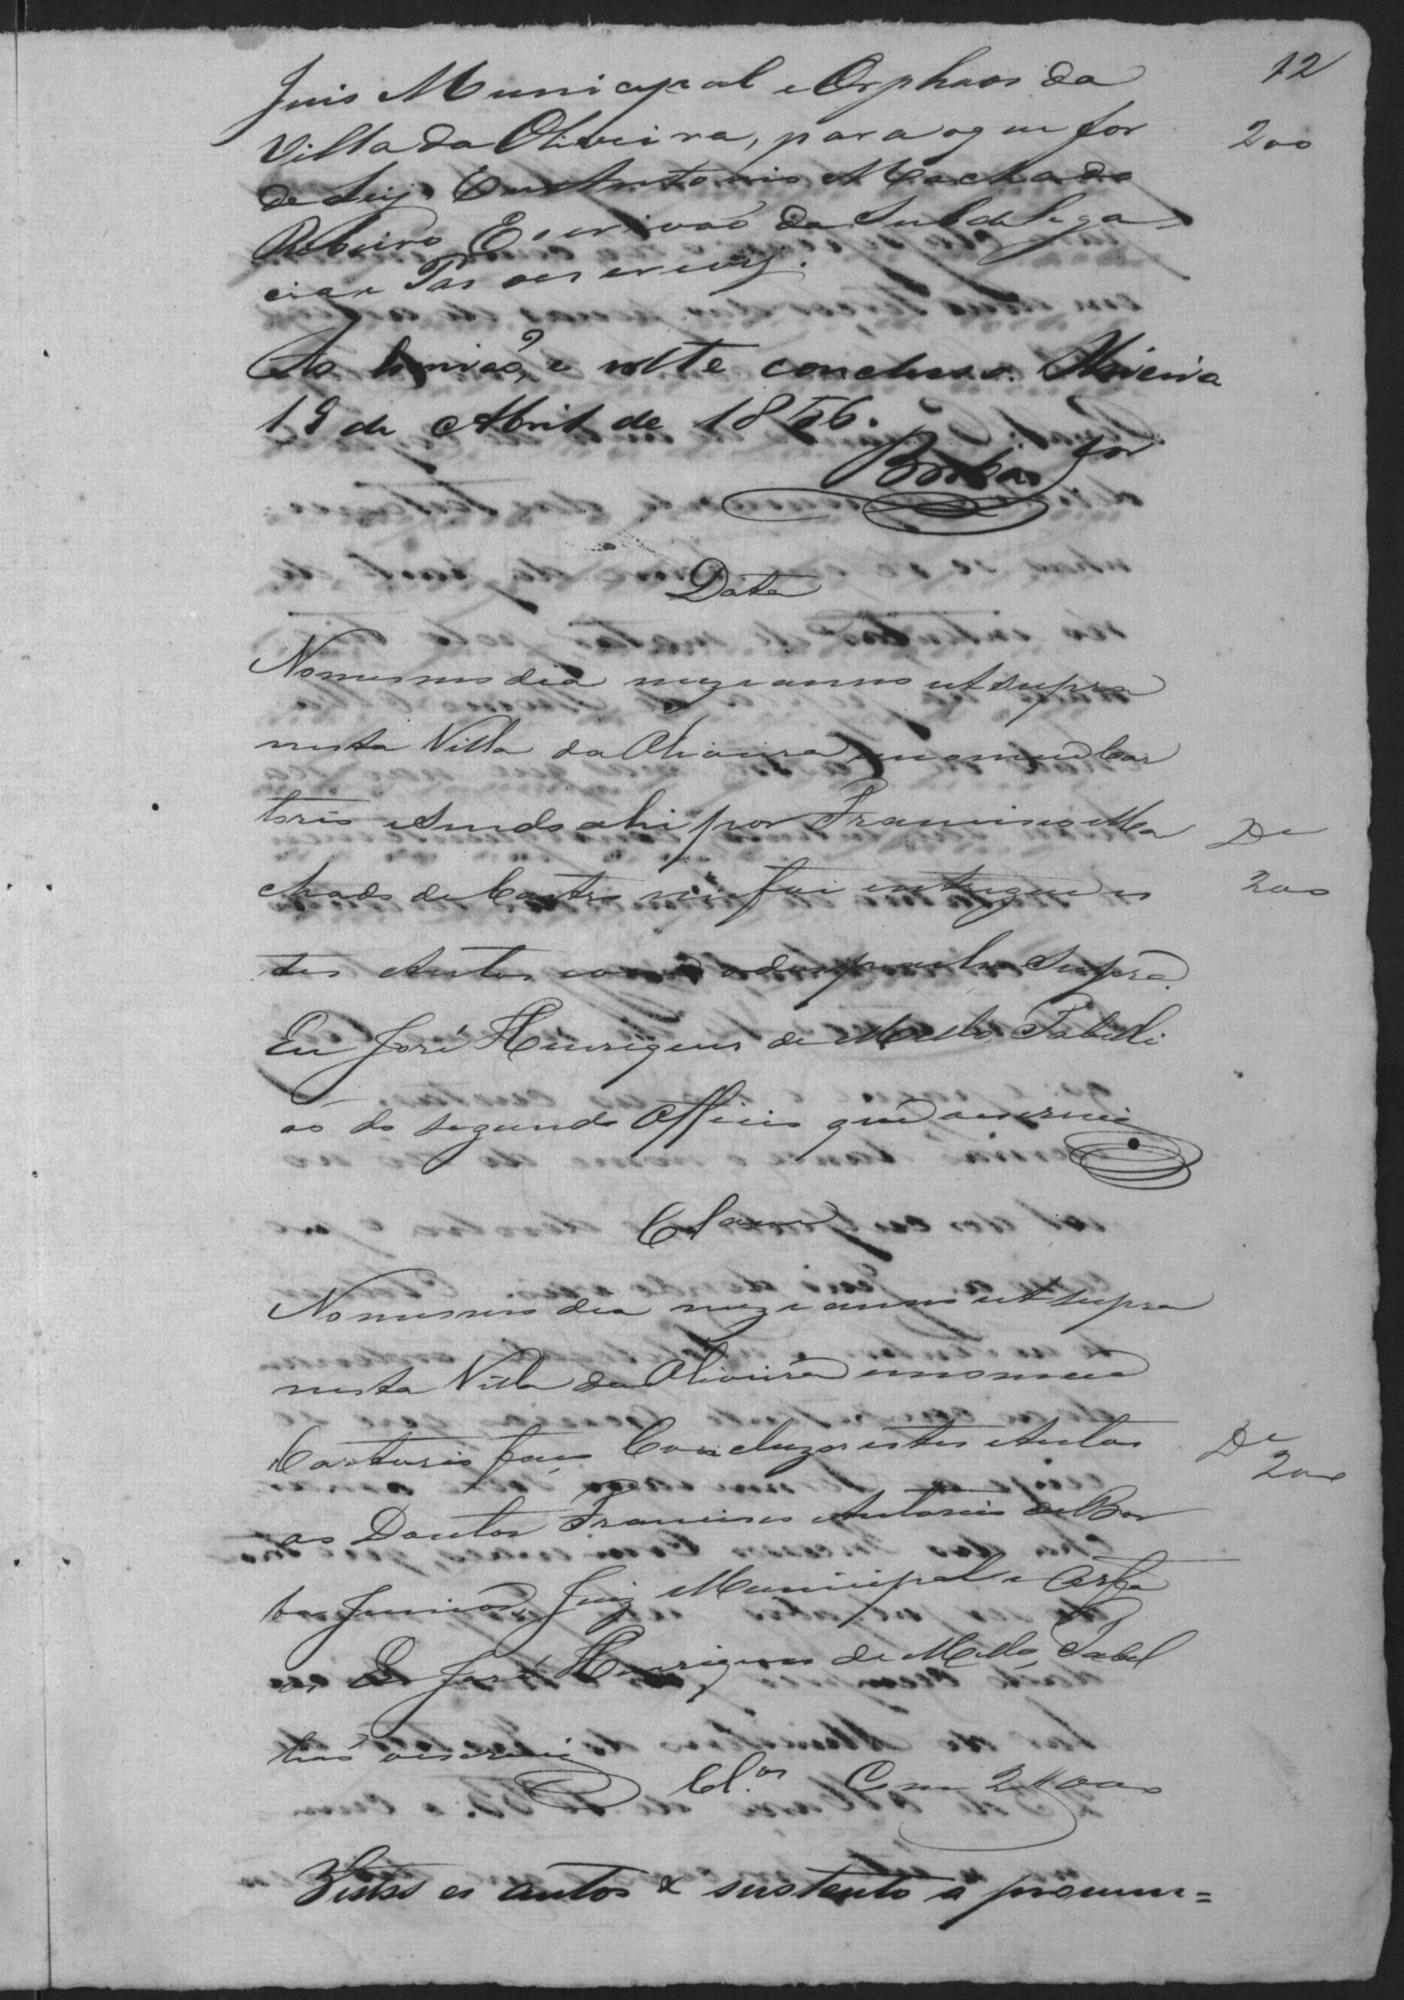 12
Juis Municipal e Orphaos da
Villa da Oliveira, para o que for
200
de Ley. Eu Antonio Machado
Ribeiro Escrivaõ da Subdelega
cia e Paz o escrevy.
Ao Escrivaõ, e volte concluso. Oliveira
19 de Abril de 1856.
Barbosa Jor
Data
No mesmo dia mez e anno ut supra
nesta Villa da Oliveira em o meu Car
torio e sendo ahi por Francisco Ma
De
chado de Castro me foi entregue es
200
tes Autos com o despacho supra
Eu José Henriques de Mello Tabeli
aõ do segundo Officio que o escrevi
Clam
No mesmo dia mez e anno ut supra
nesta Villa da Oliveira em o meu
Cartorio faço Concluzos estes Autos
De
200
ao Doutor Francisco Antonio de Bar
boza Junior, Juiz Municipal e Orfa
os Eu José Henriques de Mello, Tabel
liaõ o escrevi
Cl.os
Vistos os autos & sustento a pronun=